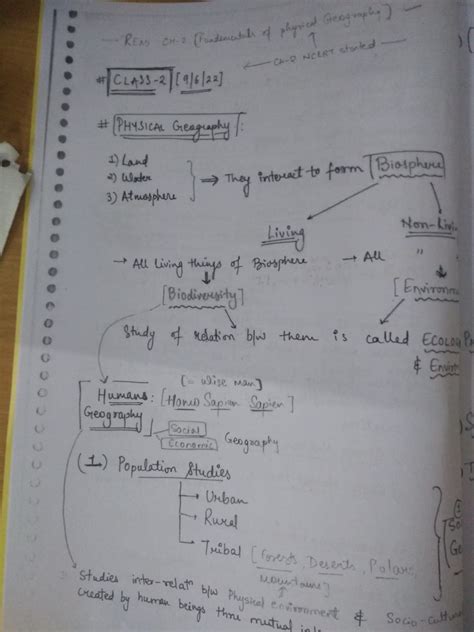 Read CH-2 [Fundamentals of physical Geography]
CH-2 NCERT started
# CLASS-2 [9/6/22]
# PHYSICAL Geography :
1) Land
2) Water
3) Atmosphere
⇒ They interact to form Biosphere
Living Non-Livi
→ All living things of Biosphere → All " "
[Biodiversity] [Environm
Study of relation b/w them is called ECOLOGY
& Envir
[= wise man]
Humans : [Homo Sapien Sapien]
Geography
Social
Economic Geography
(1.) Population Studies
→ Urban
→ Rural
→ Tribal [Forests, Deserts, Polar,
Mountains]
Studies inter-relatn b/w Physical environment & Socio-Cultur
created by human beings thru mutual